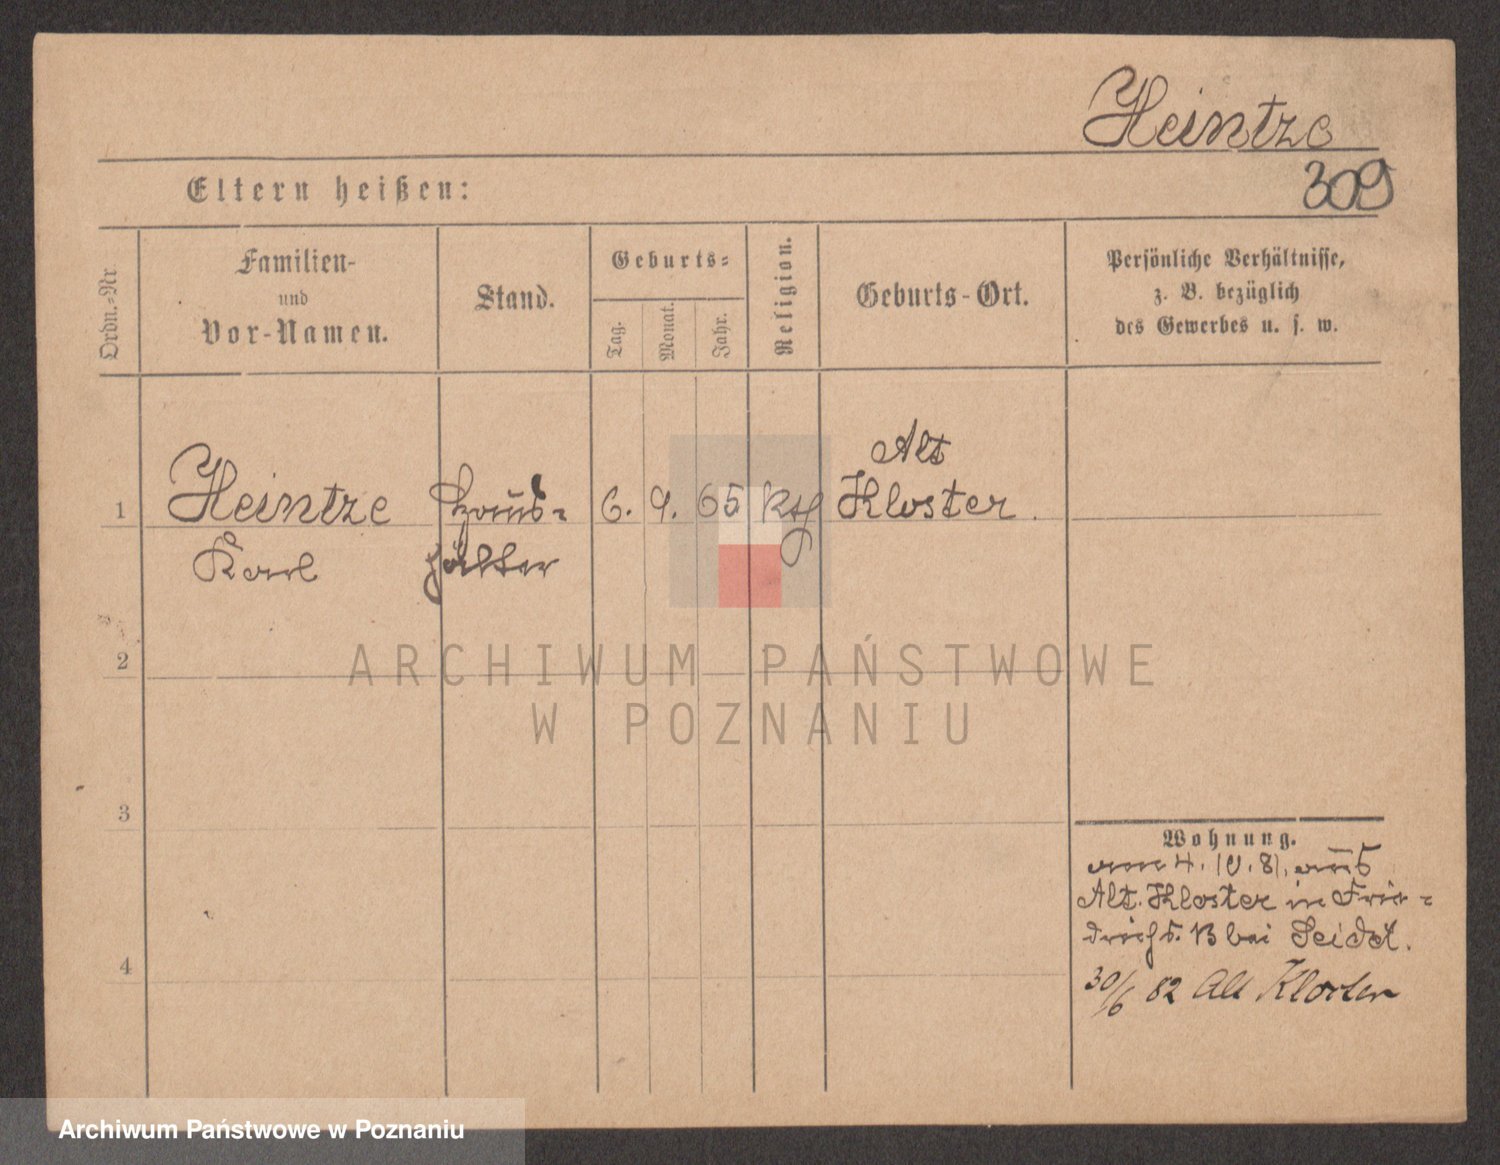 Heintze
309
Eltern heißen:
Ordn.-Nr
Familien-
und
Vor-Namen.
Stand.
Geburts-
Tag.
Monat.
Jahr.
Religion.
Geburts-Ort.
Persönliche Verhältnisse,
z. B. bezüglich
des Gewerbes u. s. w.
1
Heintze
Karl
Haus-
hälter
6. 9. 65
kth
Alt
Kloster.
2
3
4
ARCHIWUM PAŃSTWOWE
W POZNANIU
Wohnung.
4. 10. 81. aus
Alt. Kloster in Frie-
drichs. 13 bei Seidel.
30/6 82 Alt Kloster
Archiwum Państwowe w Poznaniu